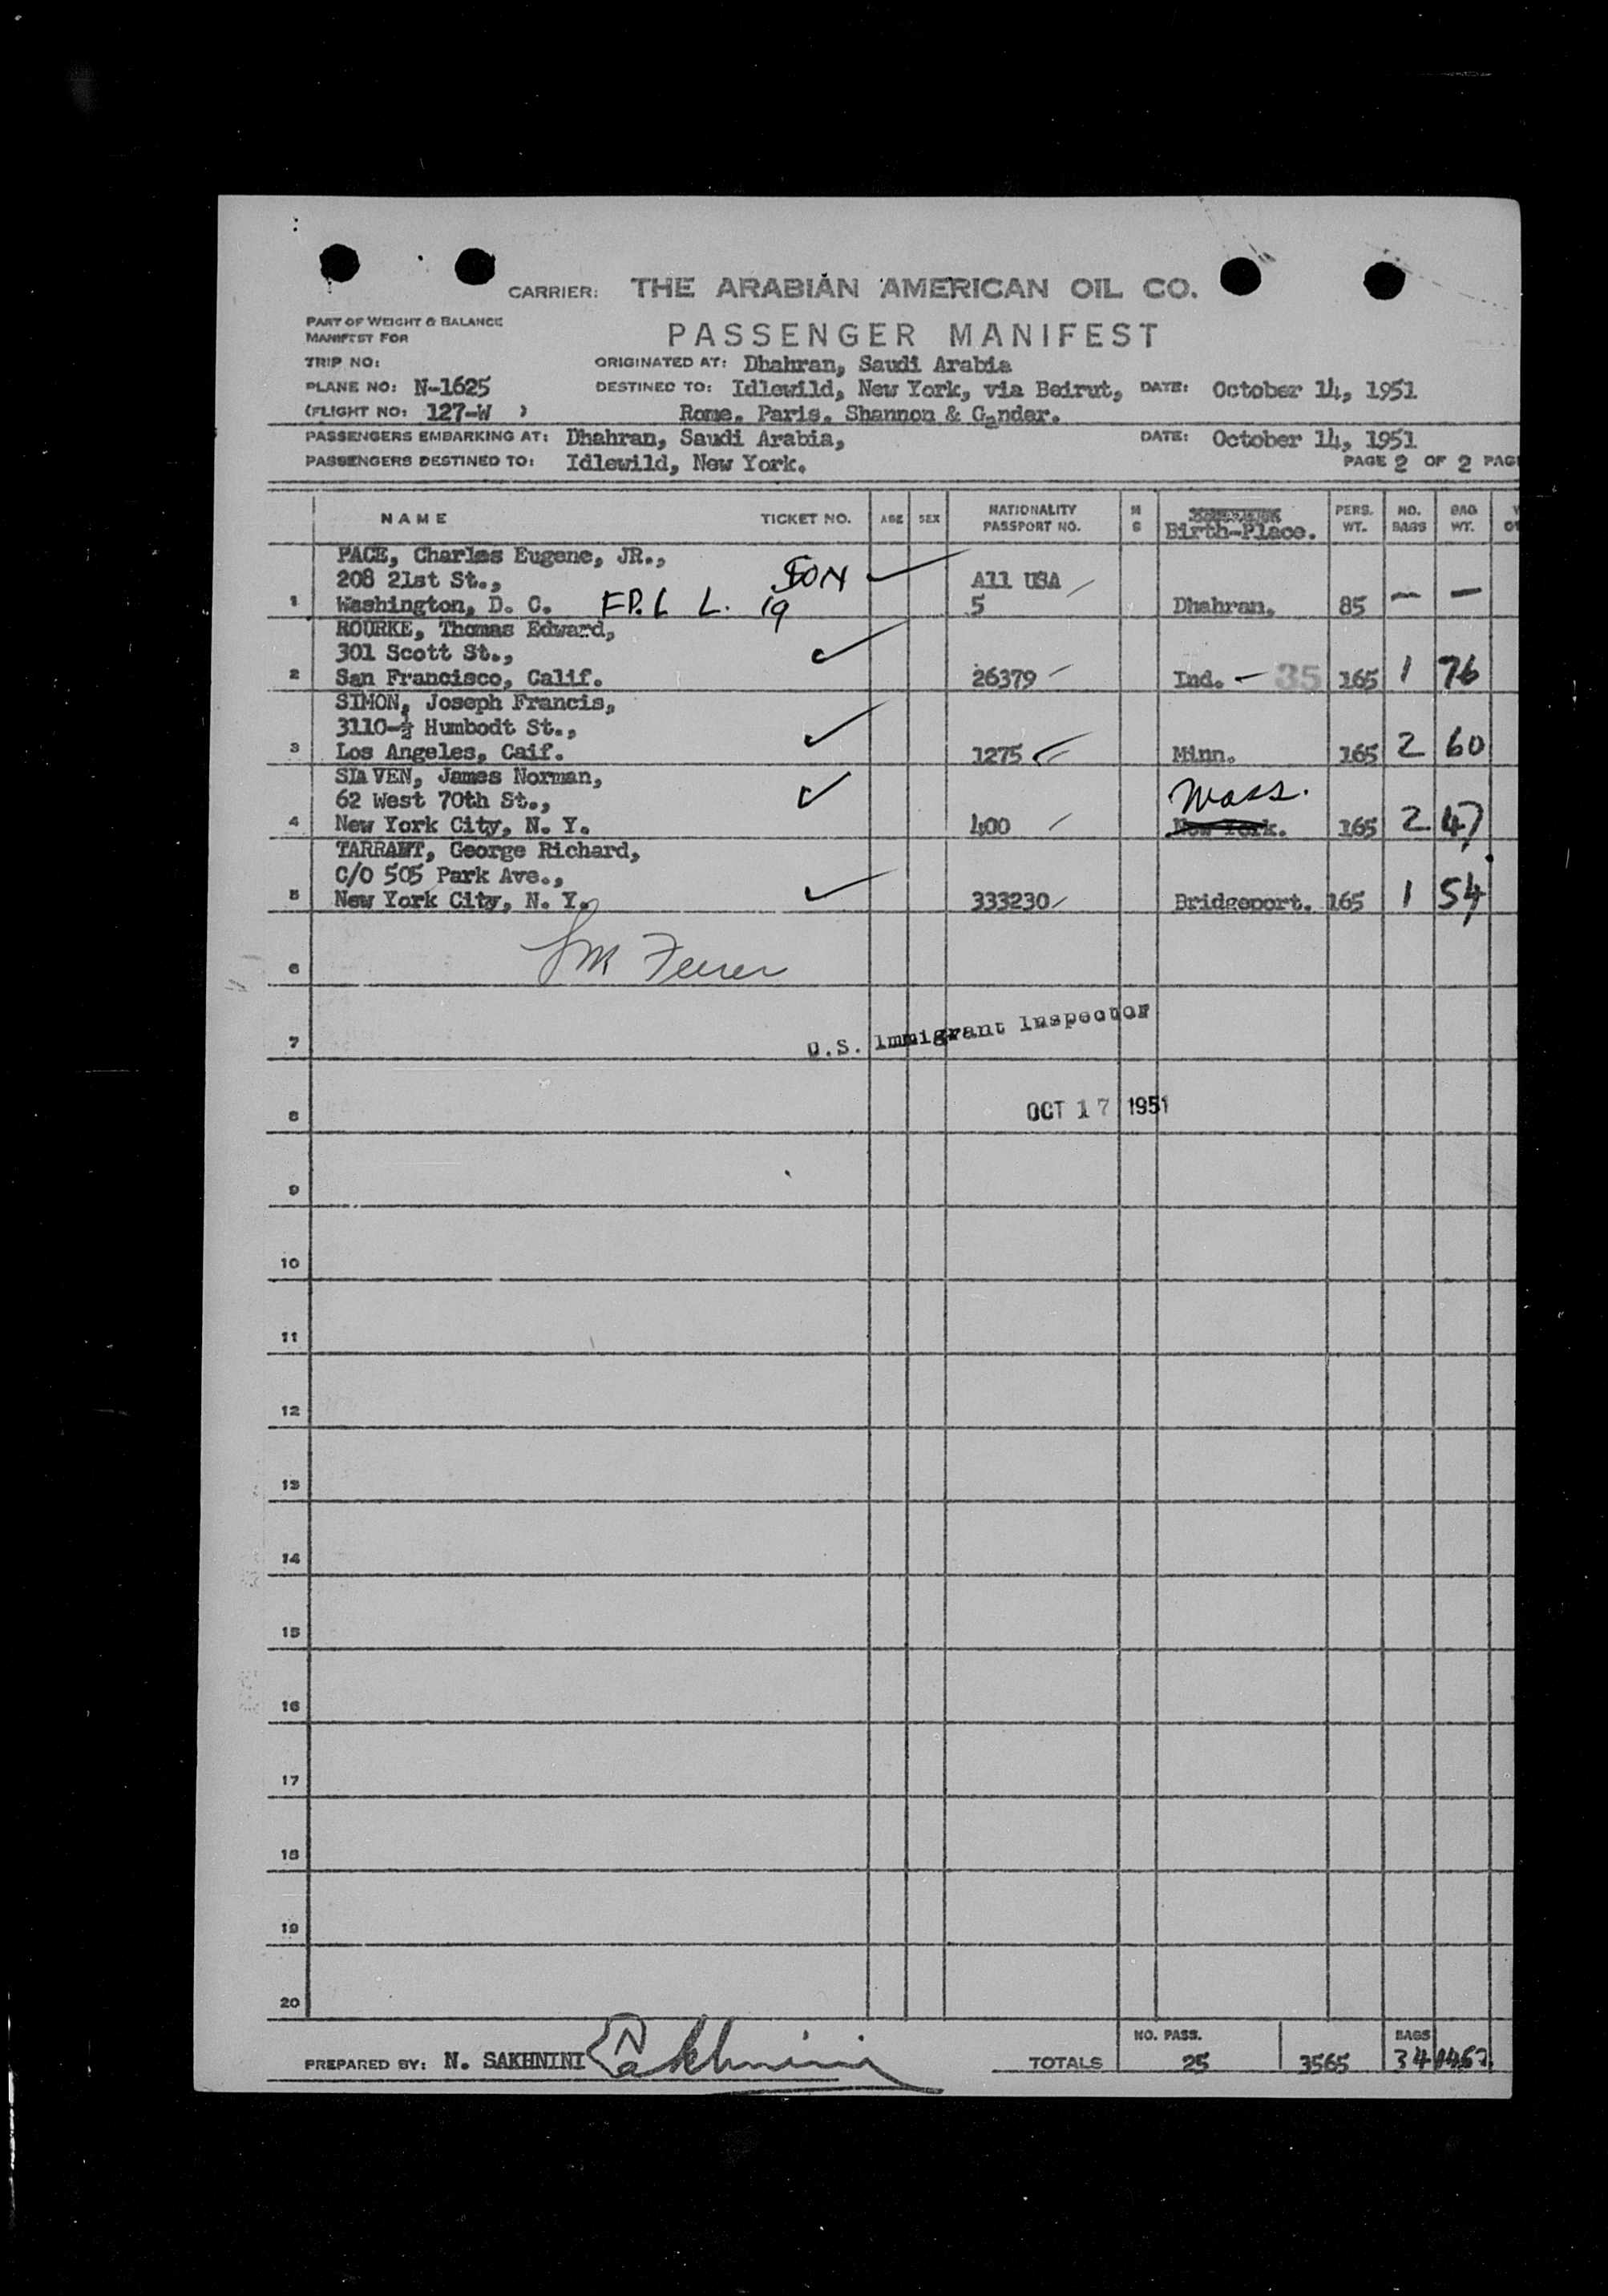 CARRIER: THE ARABIAN AMERICAN OIL CO.
PART OF WEIGHT & BALANCE
MANIFEST FOR
PASSENGER MANIFEST
TRIP NO:
ORIGINATED AT: Dhahran, Saudi Arabia
PLANE NO: N-1625
DESTINED TO: Idlewild, New York, via Beirut, DATE: October 14, 1951
(FLIGHT NO: 127-W )
Rome, Paris, Shannon & Gander.
PASSENGERS EMBARKING AT: Dhahran, Saudi Arabia, DATE: October 14, 1951
PASSENGERS DESTINED TO: Idlewild, New York. PAGE 2 OF 2
NAME TICKET NO. AGE SEX NATIONALITY PASSPORT NO. M S Birth-Place. PERS. WT. NO. BAGS BAG WT.
PACE, Charles Eugene, JR.,
208 21st St., SON All USA
1 Washington, D. C. 19 5 Dhahran. 85 — —
ROURKE, Thomas Edward,
301 Scott St.,
2 San Francisco, Calif. 26379 Ind. - 35 165 1 76
SIMON, Joseph Francis,
3110-½ Humbodt St.,
3 Los Angeles, Caif. 1275 Minn. 165 2 60
SLAVEN, James Norman,
62 West 70th St., Mass.
4 New York City, N. Y. 400 New York. 165 2 47
TARRANT, George Richard,
C/O 505 Park Ave.,
5 New York City, N. Y. 333230 Bridgeport. 165 1 54
6
7 U.S. Immigrant Inspector
8 OCT 17 1951
9
10
11
12
13
14
15
16
17
18
19
20
NO. PASS. BAGS
PREPARED BY: N. SAKHNINI Sakhnini TOTALS 25 3565 34